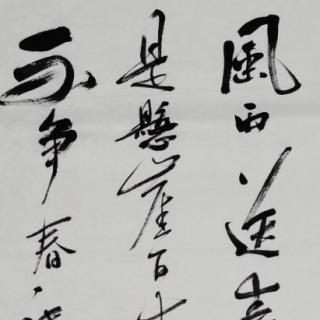 風雨送春
是懸崖百丈
不争春